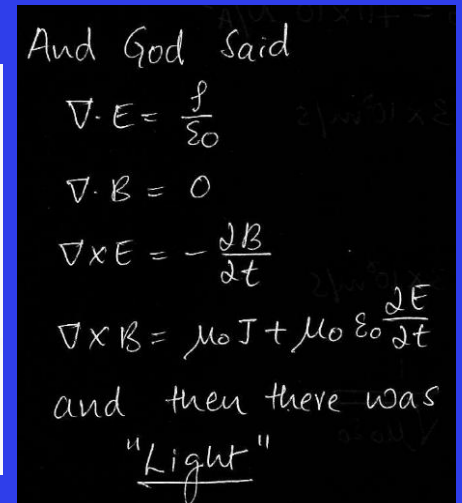 And God Said
∇·E = ρ/ε0
∇·B = 0
∇×E = -∂B/∂t
∇×B = μ0 J + μ0 ε0 ∂E/∂t
and then there was
"Light"